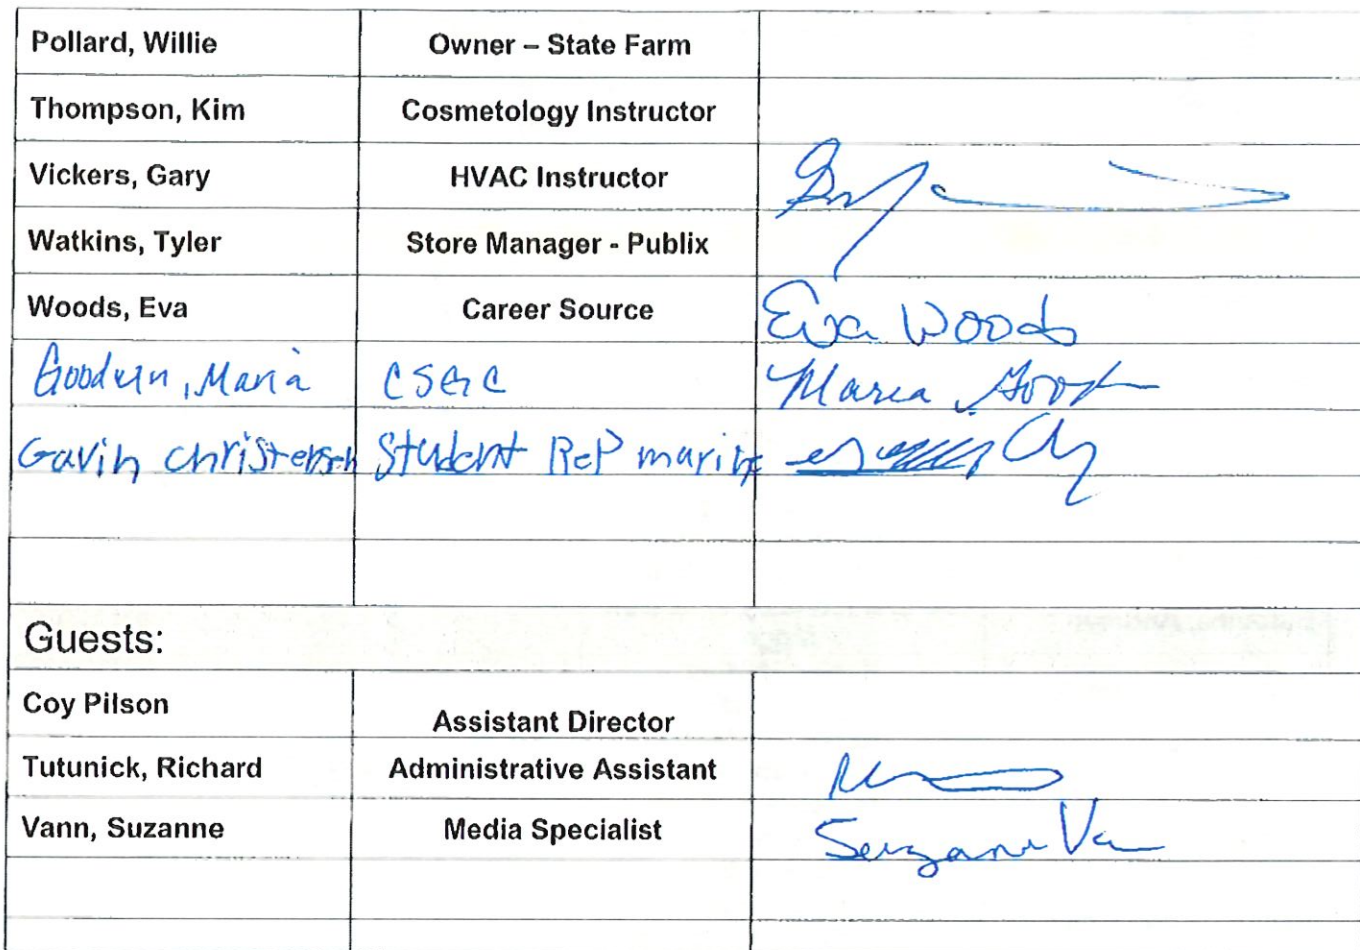 Pollard, Willie Owner – State Farm
Thompson, Kim Cosmetology Instructor
Vickers, Gary HVAC Instructor
Watkins, Tyler Store Manager - Publix
Woods, Eva Career Source Eva Woods
Goodwin, Maria Maria
Gavin Christensen Student Rep marine
Guests:
Coy Pilson Assistant Director
Tutunick, Richard Administrative Assistant
Vann, Suzanne Media Specialist Suzanne Va